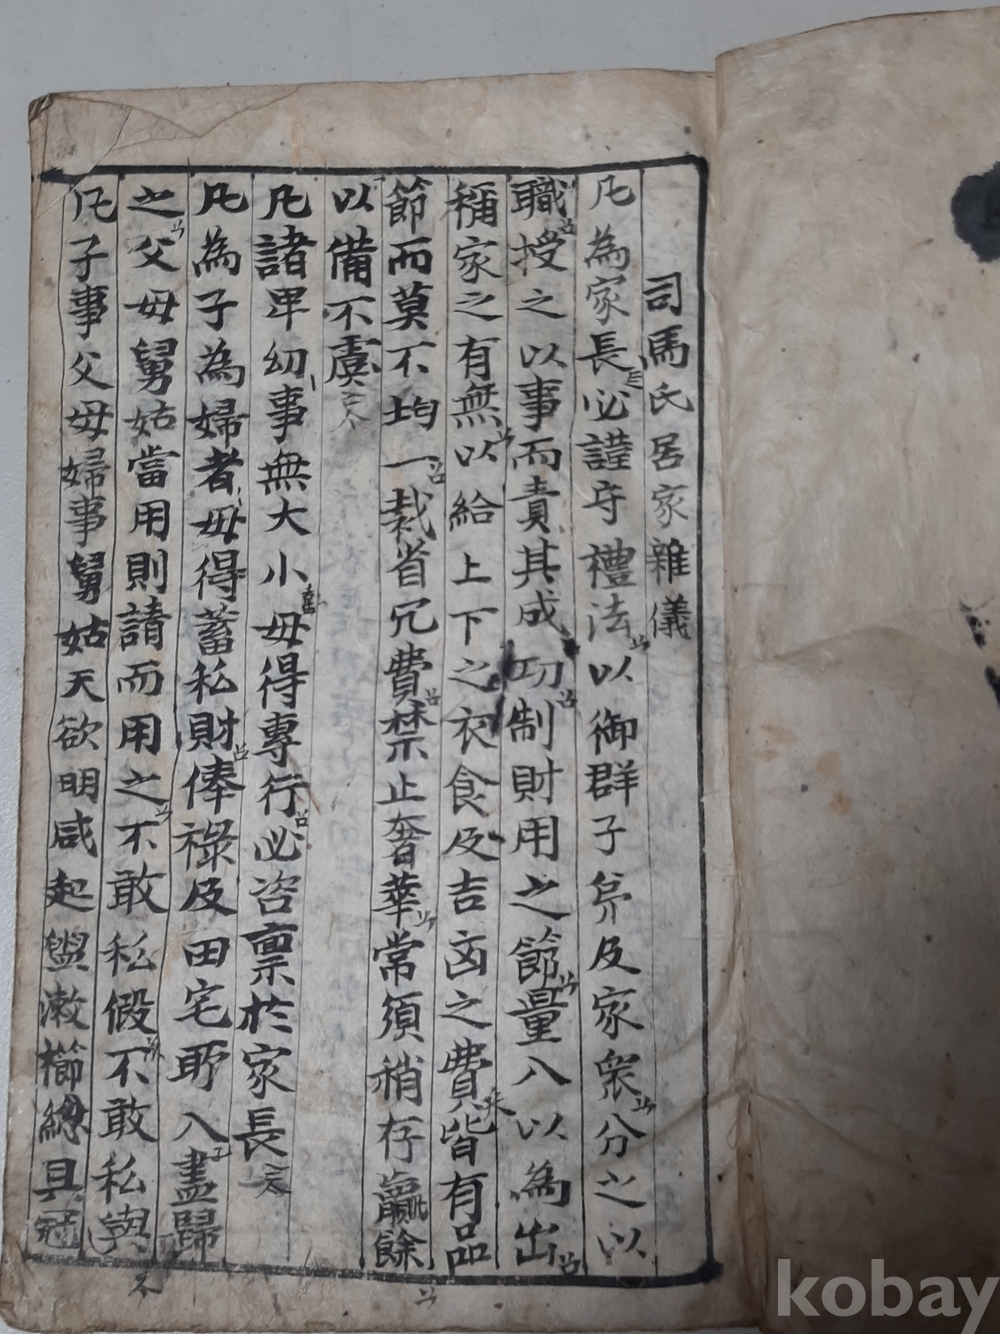 司馬氏居家雜儀
凡為家長必謹守禮法以御群子弟及家衆分之以
職授之以事而責其成功制財用之節量入以為出
稱家之有無以給上下之衣食及吉凶之費皆有品
節而莫不均一裁省冗費禁止奢華常須稍存贏餘
以備不虞
凡諸卑幼事無大小毋得專行必咨禀於家長
凡為子為婦者毋得蓄私財俸祿及田宅所入盡歸
之父毋舅姑當用則請而用之不敢私假不敢私與
凡子事父毋婦事舅姑天欲明咸起盥漱櫛總具冠
kobay